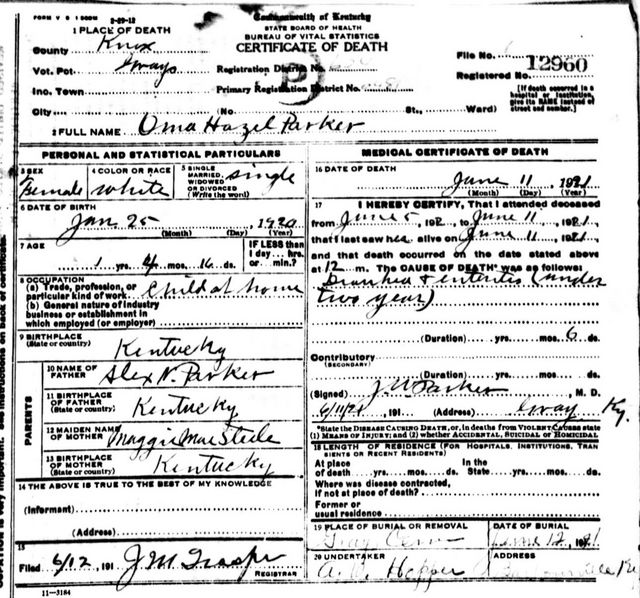 FORM V S 1 500M 2-29-12
1 PLACE OF DEATH
County Knox
Vot. Pct. Grays
Inc. Town
City (No. St., Ward)
Commonwealth of Kentucky
STATE BOARD OF HEALTH
BUREAU OF VITAL STATISTICS
CERTIFICATE OF DEATH
Registration District No.
Primary Registration District No.
File No.
12960
Registered No.
[If death occurred in a hospital or institution, give its NAME instead of street and number.]
2 FULL NAME Oma Hazel Parker
PERSONAL AND STATISTICAL PARTICULARS
3 SEX Female
4 COLOR OR RACE white
5 SINGLE MARRIED, WIDOWED OR DIVORCED (Write the word) single
6 DATE OF BIRTH
Jan 25 1920
(Month) (Day) (Year)
7 AGE
1 yrs. 4 mos. 16 ds.
IF LESS than 1 day... hrs. or min.?
8 OCCUPATION
(a) Trade, profession, or particular kind of work Child at home
(b) General nature of industry
business or establishment in
which employed (or employer)
9 BIRTHPLACE
(State or country) Kentucky
PARENTS
10 NAME OF FATHER Alex N. Parker
11 BIRTHPLACE OF FATHER (State or country) Kentucky
12 MAIDEN NAME OF MOTHER Maggie Mae Steele
13 BIRTHPLACE OF MOTHER (State or country) Kentucky
14 THE ABOVE IS TRUE TO THE BEST OF MY KNOWLEDGE
(Informant)
(Address)
15
Filed 6/12, 191 J M
REGISTRAR
11-3184
MEDICAL CERTIFICATE OF DEATH
16 DATE OF DEATH
June 11 1921
(Month) (Day) (Year)
17 I HEREBY CERTIFY, That I attended deceased
from June 5, 192 , to June 11, 1921,
that I last saw her alive on June 11, 1921,
and that death occurred on the date stated above
at 12 m. The CAUSE OF DEATH* was as follows:
Diarrhea & enteritis (under
two year)
(Duration) yrs. mos. 6 ds.
Contributory
(SECONDARY)
(Duration) yrs. mos. ds.
(Signed) J. W Parker, M. D.
6/11/21, 191 (Address) Gray Ky.
*State the DISEASE CAUSING DEATH, or, in deaths from VIOLENT CAUSES state
(1) MEANS OF INJURY; and (2) whether ACCIDENTAL, SUICIDAL OR HOMICIDAL
18 LENGTH OF RESIDENCE (FOR HOSPITALS, INSTITUTIONS, TRANSIENTS OR RECENT RESIDENTS)
At place of death yrs. mos. ds. In the State yrs. mos. ds.
Where was disease contracted,
if not at place of death?
Former or
usual residence
19 PLACE OF BURIAL OR REMOVAL
Gray Cem
DATE OF BURIAL
June 12, 1921
20 UNDERTAKER
Hopper
ADDRESS
Ky